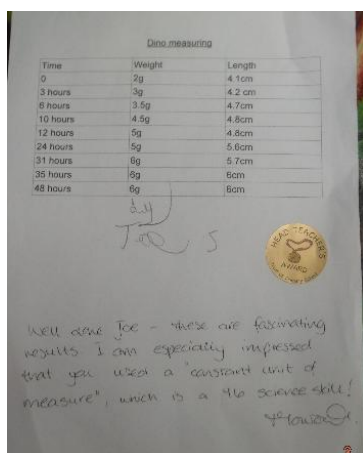 Dino measuring
Time Weight Length
0 2g 4.1cm
3 hours 3g 4.2 cm
6 hours 3.5g 4.7cm
10 hours 4.5g 4.8cm
12 hours 5g 4.8cm
24 hours 5g 5.6cm
31 hours 6g 5.7cm
35 hours 6g 6cm
48 hours 6g 6cm
HEAD TEACHER'S
AWARD
Well done Joe - these are fascinating
results. I am especially impressed
that you used a "constant unit of
measure", which is a Y6 science skill!